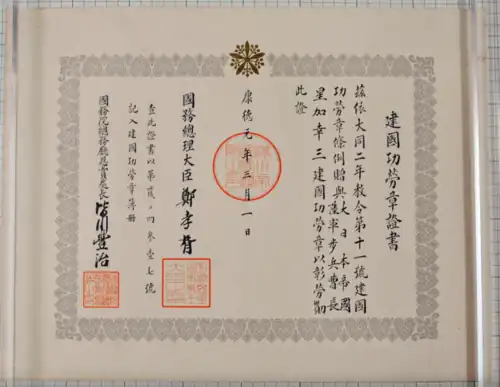 建國功勞章證書
茲依大同二年教令第十一號建國
功勞章條例贈與大日本帝國
陸軍步兵曹長
星加幸三建國功勞章以彰勞勩
此證
康德元年三月一日
國務總理大臣 鄭孝胥
查此證書以第貳ノ四參壹七號
記入建國功勞章簿冊
國務院總務廳恩賞處長 皆川豐治